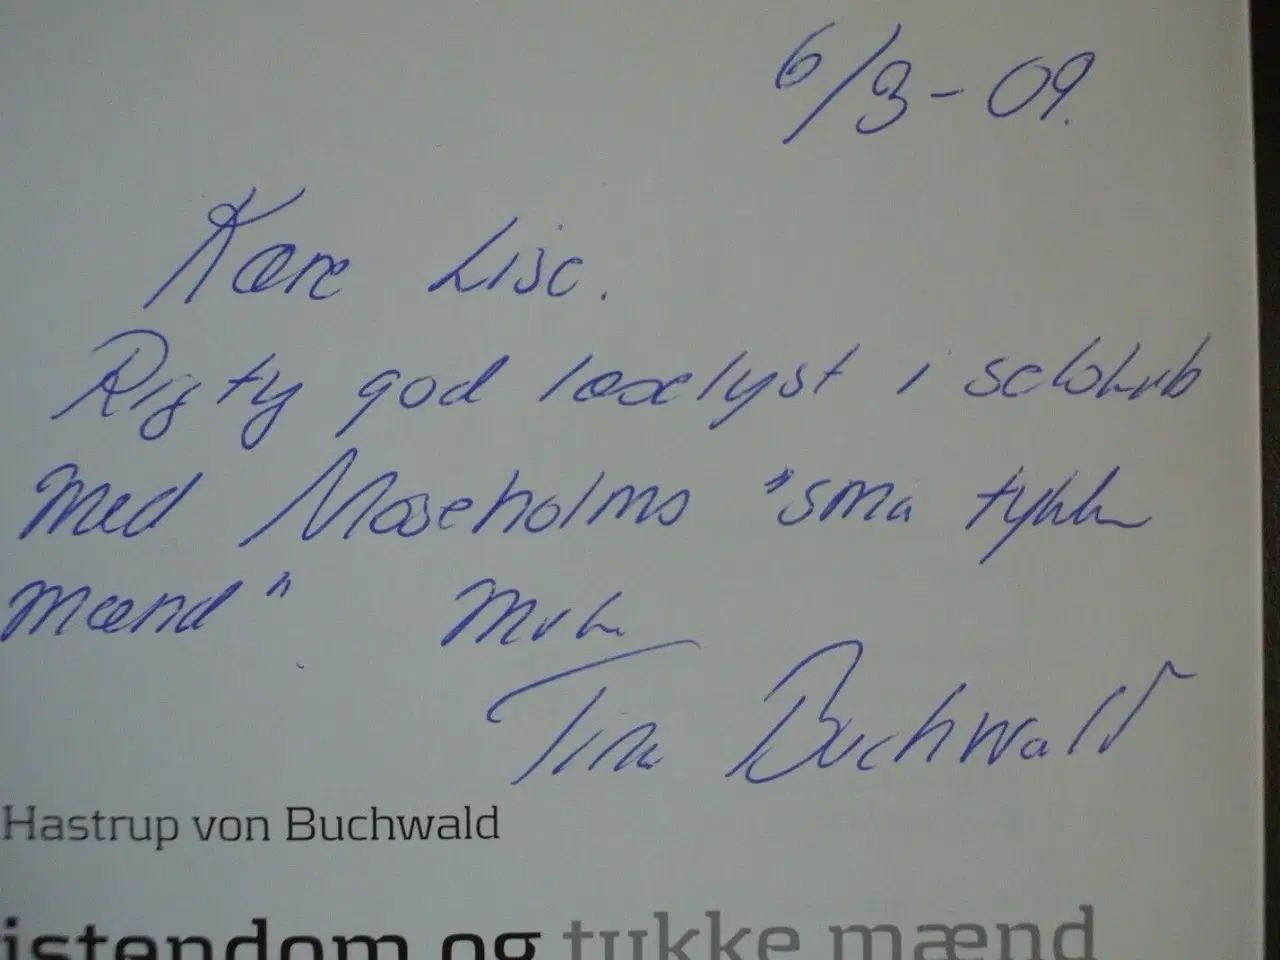 6/3-09.
Kære Lise.
Rigtig god læselyst i selskab
med Moseholms "små tykke
mænd"
Tina Buchwald
Hastrup von Buchwald
istendom og tykke mænd